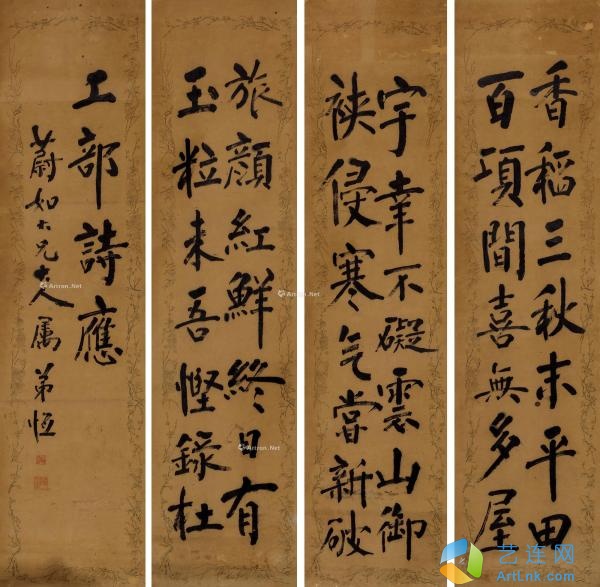 香稻三秋末平田
百頃間喜無多屋
宇幸不礙雲山御
裌侵寒气嘗新破
旅顏紅鮮終日有
玉粒未吾慳錄杜
工部詩應
蔚如大兄大人属 弟恆
Artron.Net
Artron.Net
Artron.Net
Artron.Net
艺连网
Artlnk.com